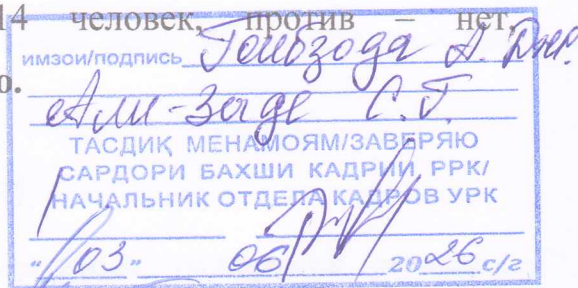 14 человек, против – нет,
имзои/подпись Гоибзода А. Дж.
о.
Али-Заде С.Г.
ТАСДИҚ МЕНАМОЯМ/ЗАВЕРЯЮ
САРДОРИ БАХШИ КАДРИИ РРК/
НАЧАЛЬНИК ОТДЕЛА КАДРОВ УРК
"03" 06 2026 с/г